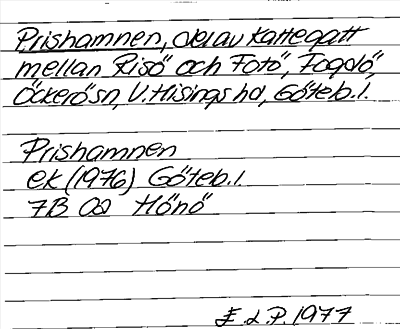 Prishamnen, del av Kattegatt
mellan Risö och Fotö, Fogdö,
Öckerö sn, V. Hisings hd, Göteb. l.
Prishamnen
ek (1976) Göteb. l.
7B 0a Hönö
E. d. P. 1977